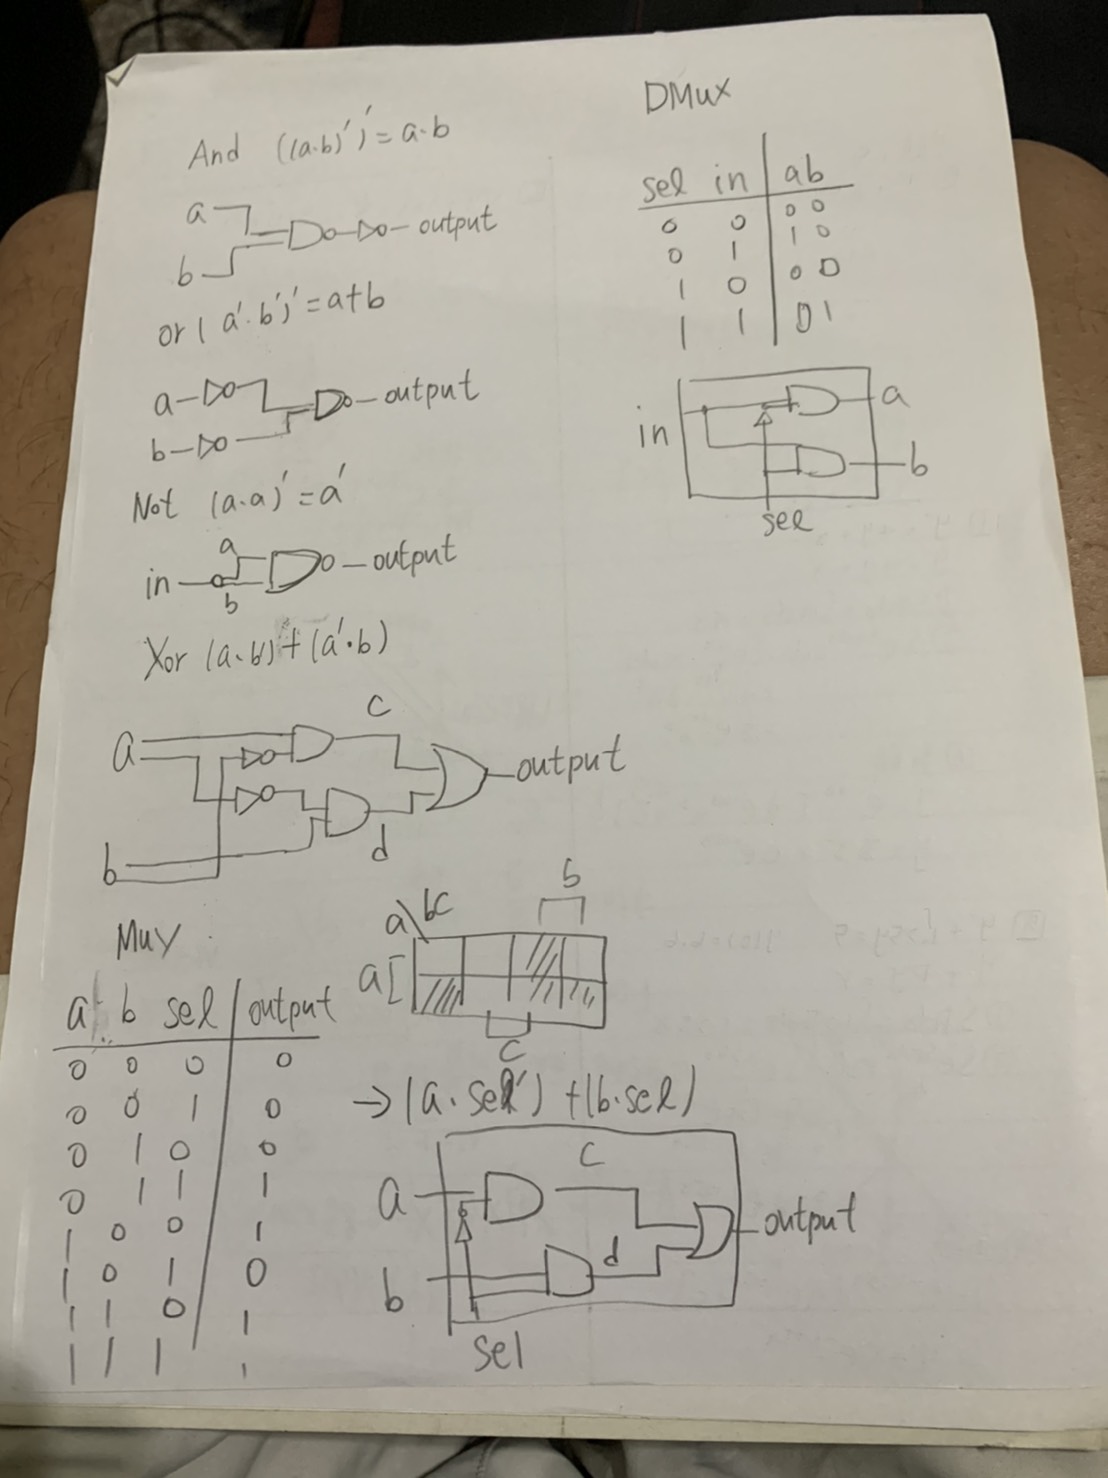 And ((a·b)')' = a·b
a
b
output
or (a'·b')' = a+b
a
b
output
Not (a·a)' = a'
in
a
b
output
Xor (a·b')+(a'·b)
a
b
c
d
output
Mux
a b sel output
0 0 0 0
0 0 1 0
0 1 0 0
0 1 1 1
1 0 0 1
1 0 1 0
1 1 0 1
1 1 1 1
b
a\bc
a
c
→ (a·sel') + (b·sel)
c
a
b
d
output
sel
DMux
sel in ab
0 0 0 0
0 1 1 0
1 0 0 0
1 1 0 1
in
a
b
sel